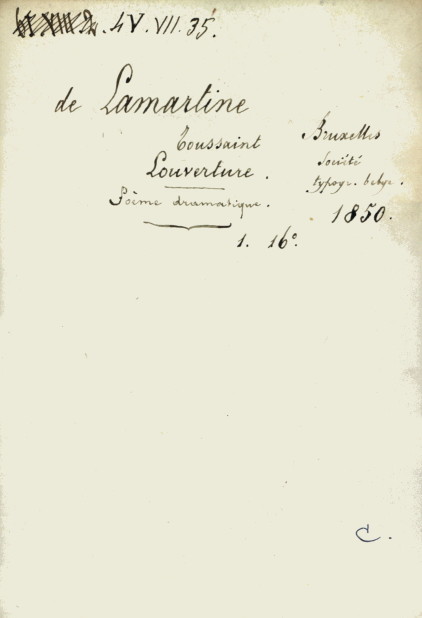 4V.VII.35.
de Lamartine
Toussaint
Louverture.
Poème dramatique.
Bruxelles
Société
typogr. belge.
1850.
1. 16°.
C.